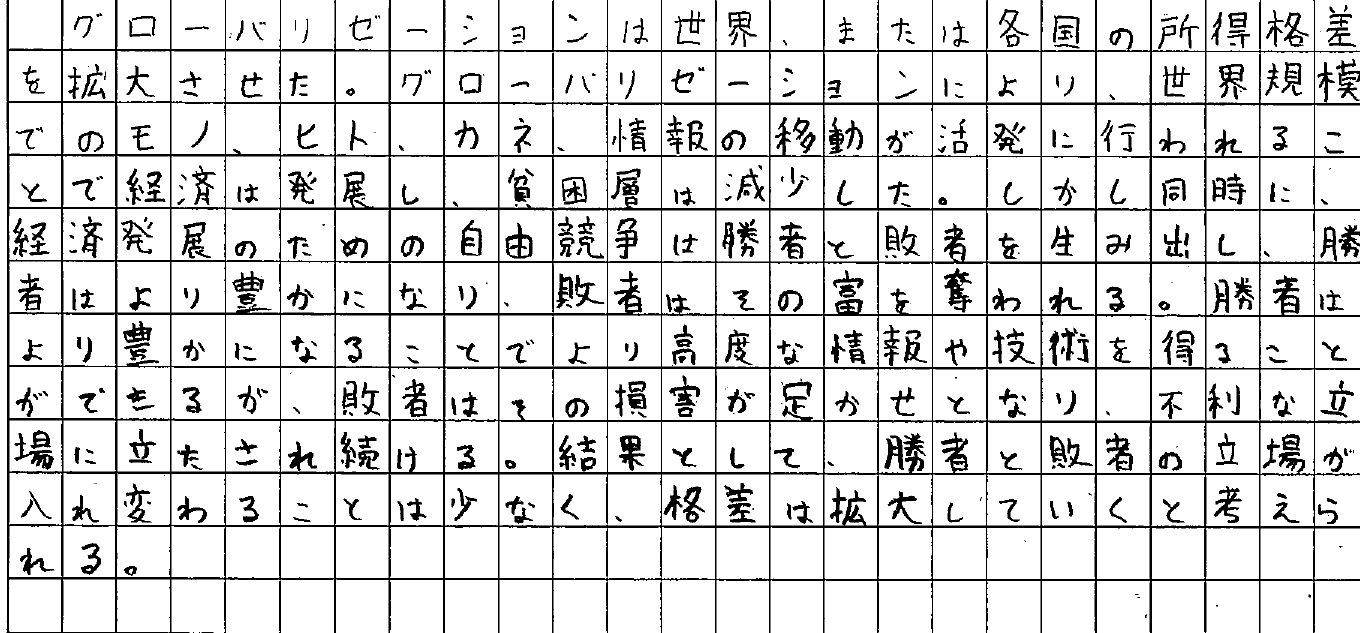 グローバリゼーションは世界、または各国の所得格差
を拡大させた。グローバリゼーションにより、世界規模
でのモノ、ヒト、カネ、情報の移動が活発に行われるこ
とで経済は発展し、貧困層は減少した。しかし同時に、
経済発展のための自由競争は勝者と敗者を生み出し、勝
者はより豊かになり、敗者はその富を奪われる。勝者は
より豊かになることでより高度な情報や技術を得ること
ができるが、敗者はその損害が足かせとなり、不利な立
場に立たされ続ける。結果として、勝者と敗者の立場が
入れ変わることは少なく、格差は拡大していくと考えら
れる。